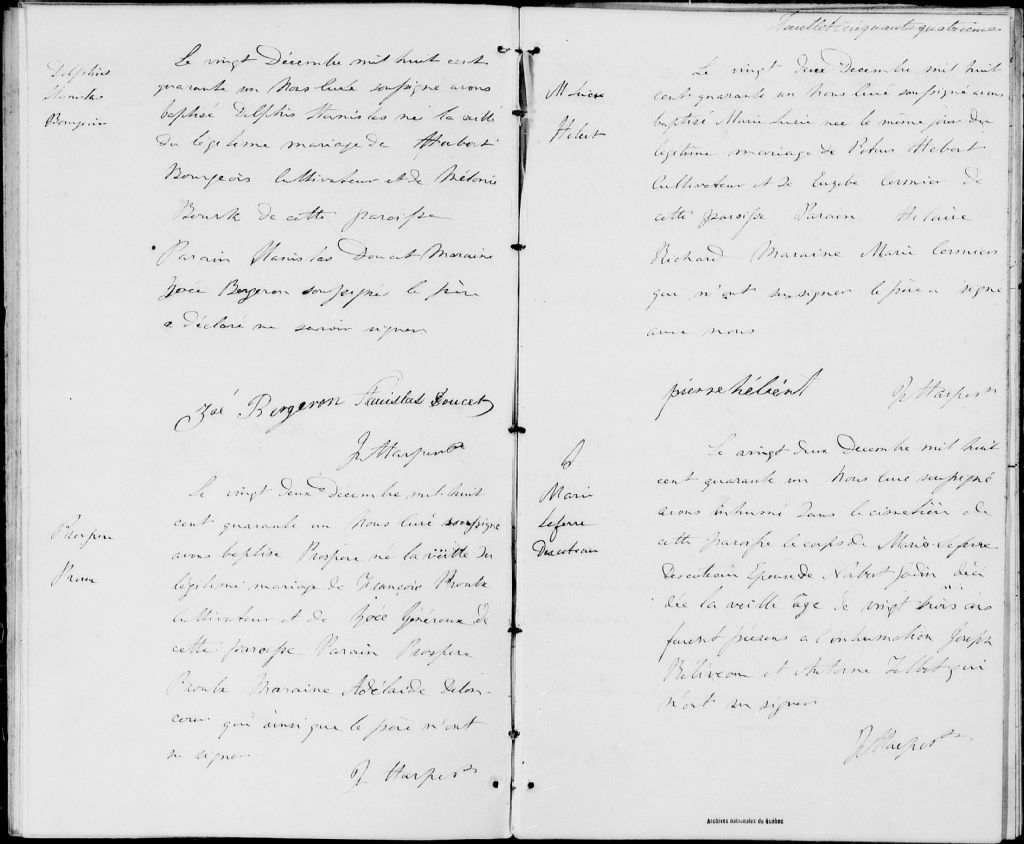 Delphis
Stanislas
Bourgeois
Le vingt Décembre mil huit cent
quarante un Nous Curé soussigné avons
baptisé Delphis Stanislas né la veille
du légitime mariage de Hubert
Bourgeois Cultivateur et de Mélonie
Bourk de cette paroisse
Parain Stanislas Doucet Maraine
Zoée Bergeron soussignés le père
a déclaré ne savoir signer
Zoé Bergeron Stanislas Doucet
J Harper Ptr
Prospere
Proux
Le vingt deux Décembre mil huit
cent quarante un Nous Curé soussigné
avons baptisé Prospere né la veille du
légitime mariage de François Proulx
Cultivateur et de Zoée Généreux de
cette paroisse Parain Prospere
Proulx Maraine Adélaide Delon-
cour qui ainsi que le père n'ont
su signer
J Harper Ptr
Feuillet cinquante quatrieme
M Lucie
Hebert
Le vingt deux Decembre mil huit
cent quarante un Nous Curé soussigné avons
baptisé Marie Lucie née le même jour du
légitime mariage de Petrus Hebert
Cultivateur et de Euzebe Cormier de
cette paroisse Parain Hilaire
Richard Maraine Marie Cormier
qui n'ont su signer le père a signé
avec nous
pierre hébért
J Harper Ptr
S
Marie
Lefevre
Descoteau
Le vingt deux Decembre mil huit
cent quarante un Nous Curé soussigné
avons inhumé dans le cimetière de
cette paroisse le corps de Marie Lefevre
Descoteau Epouse de Norbert Jodin décé
dée la veille âgé de vingt trois ans
furent présens a l'inhumation Joseph
Béliveau et Antoine Hebert qui
n'ont su signer
J Harper Ptr
Archives nationales du Québec